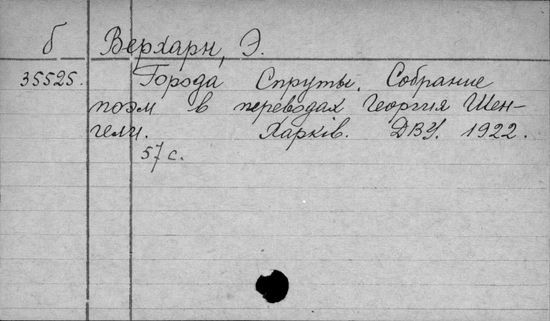 б Верхарн, Э.
35525. Города Спруты. Собрание
поэм в переводах Георгия Шен-
гели. Харкiв. ДВУ. 1922.
57 с.